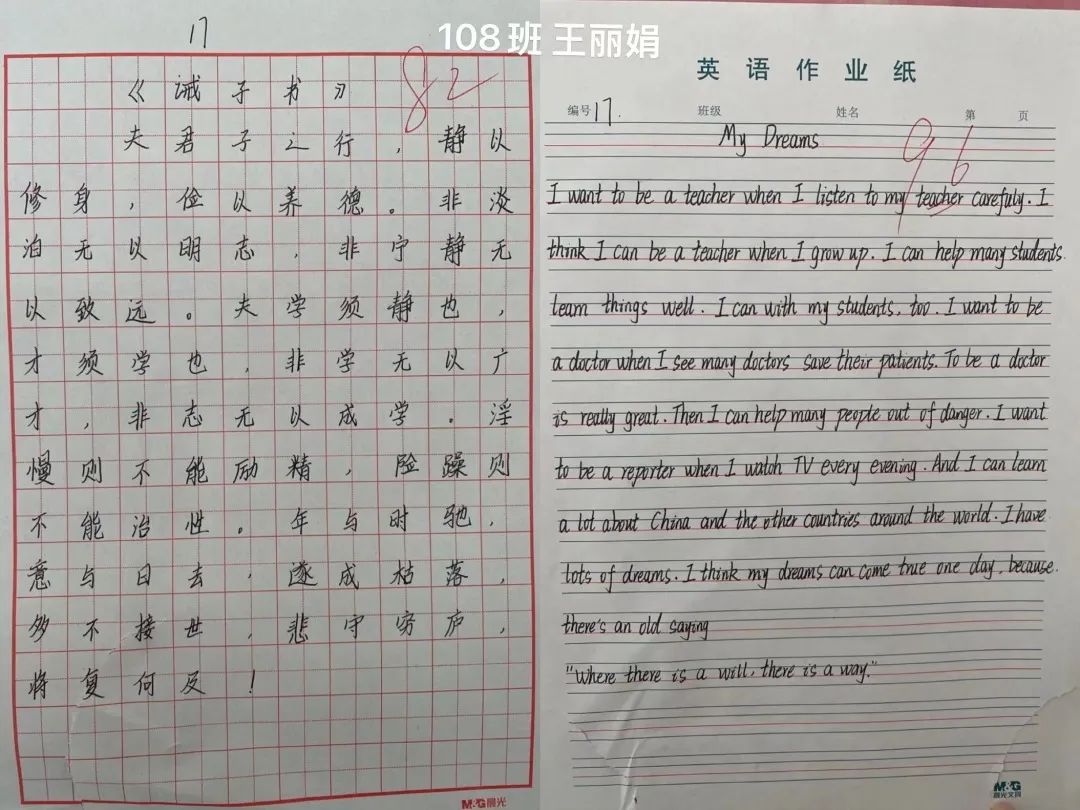 108班 王丽娟
17
82
《诫子书》
夫君子之行，静以
修身，俭以养德。非淡
泊无以明志，非宁静无
以致远。夫学须静也，
才须学也，非学无以广
才，非志无以成学。淫
慢则不能励精，险躁则
不能治性。年与时驰，
意与日去，遂成枯落，
多不接世，悲守穷庐，
将复何及！
M&G晨光
英语作业纸
编号17. 班级 姓名 第 页
96
My Dreams
I want to be a teacher when I listen to my teacher carefuly. I
think I can be a teacher when I grow up. I can help many students
learn things well. I can with my students, too. I want to be
a doctor when I see many doctors save their patients. To be a doctor
is really great. Then I can help many people out of danger. I want
to be a reporter when I watch TV every evening. And I can learn
a lot about China and the other countries around the world. I have
lots of dreams. I think my dreams can come true one day, because
there's an old saying
"Where there is a will, there is a way."
M&G
晨光文具